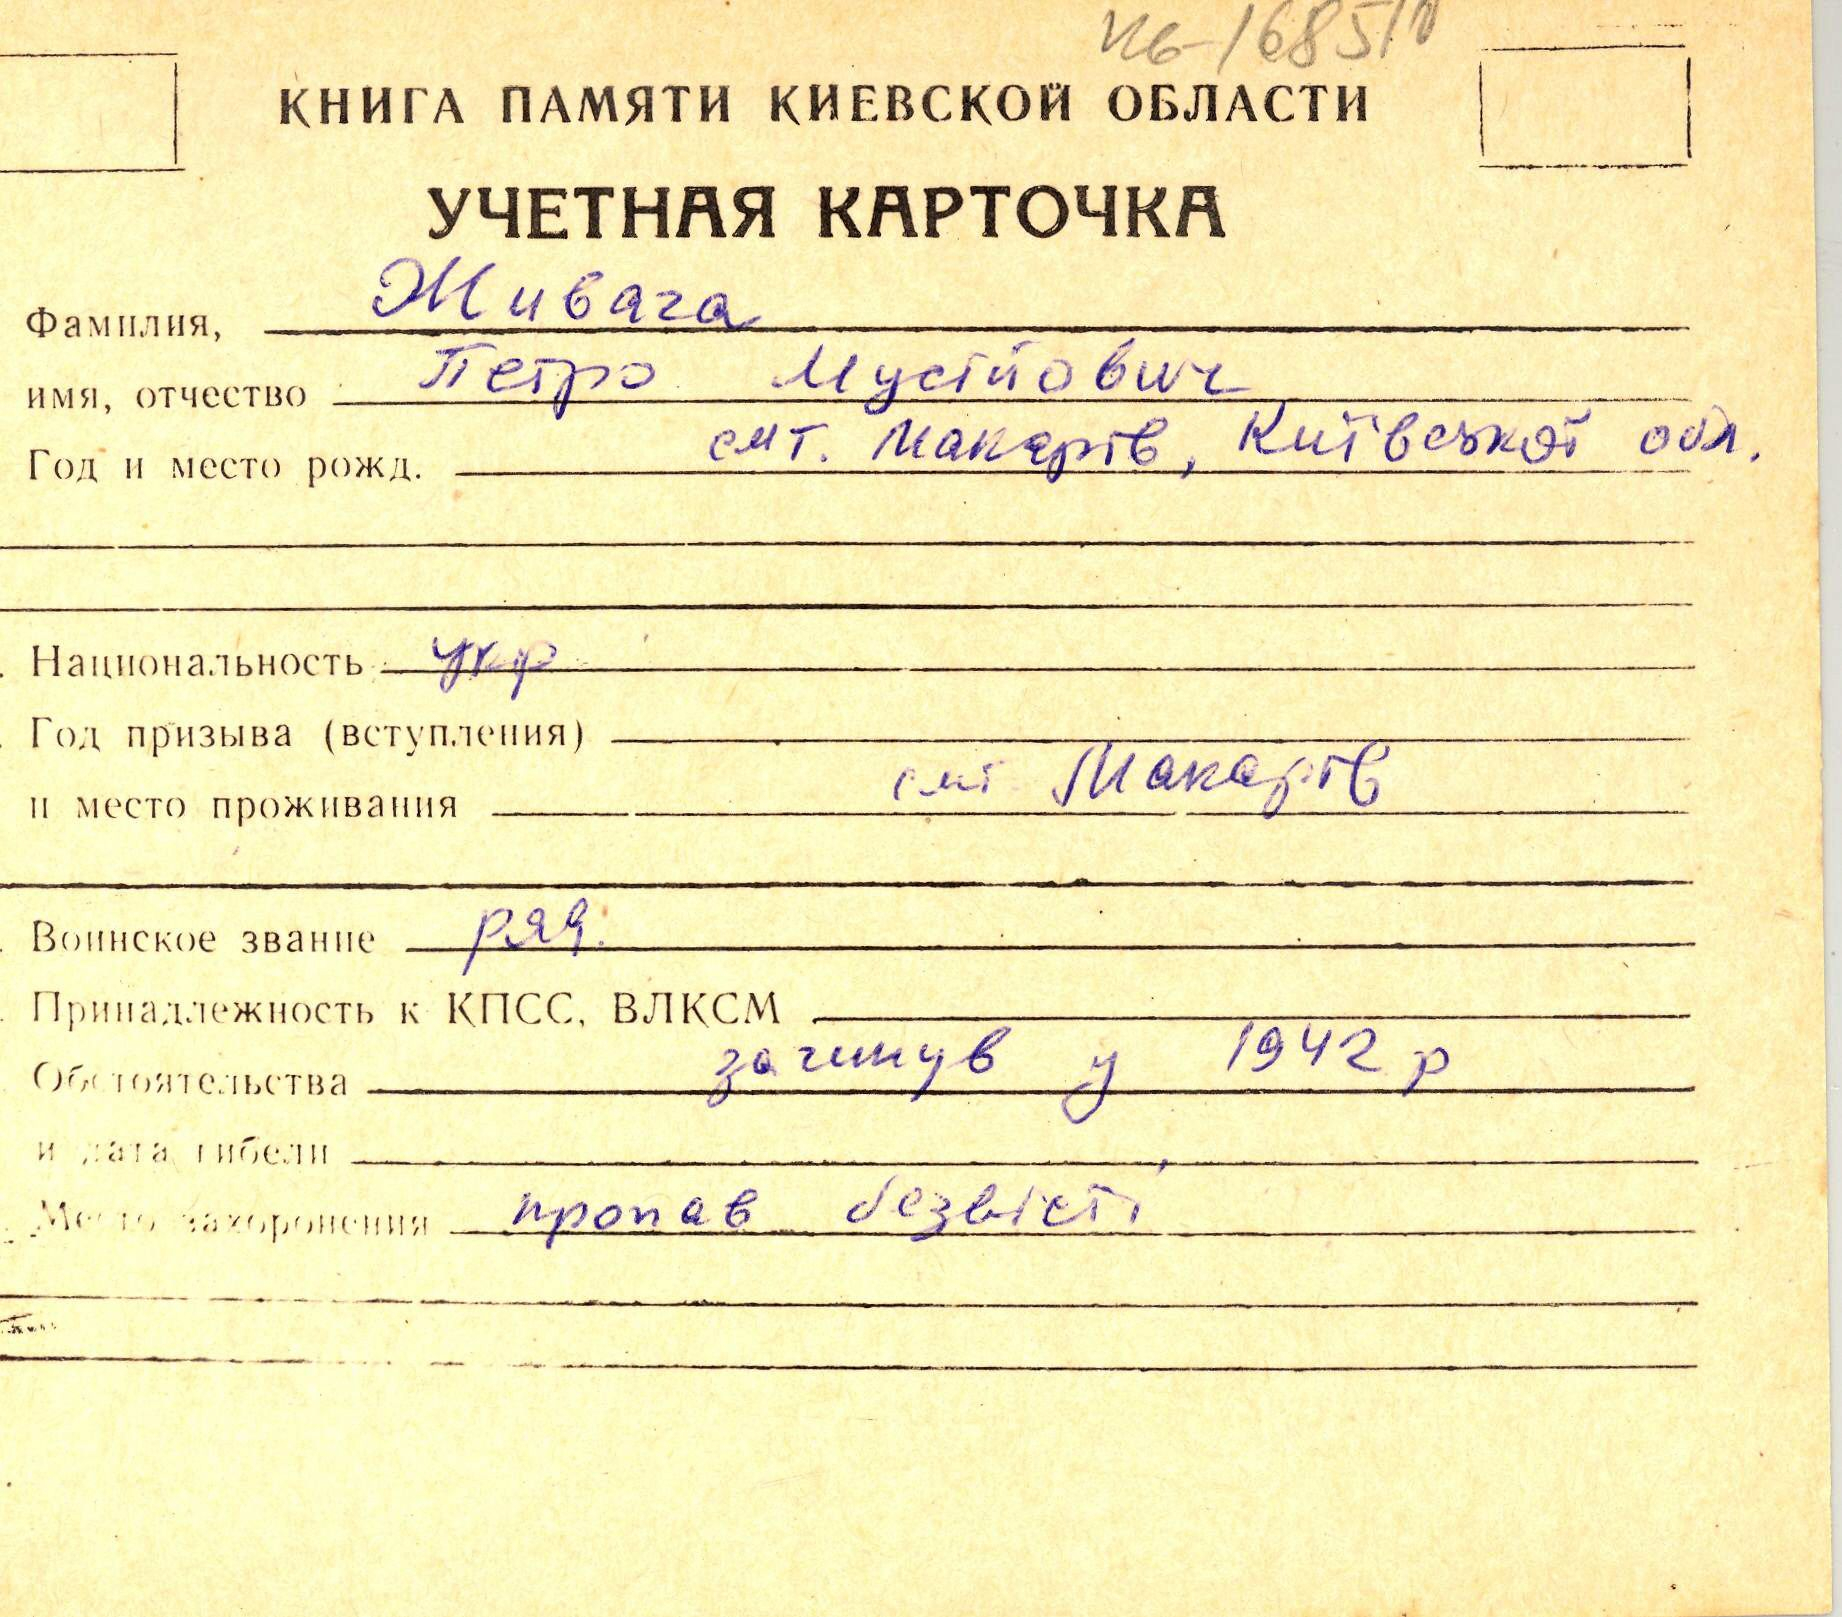 КНИГА ПАМЯТИ КИЕВСКОЙ ОБЛАСТИ
УЧЕТНАЯ КАРТОЧКА
Фамилия, Живага
имя, отчество Петро Мусійович
Год и место рожд. смт. Макарів, Київської обл.
Национальность укр
Год призыва (вступления)
и место проживания смт. Макарів
Воинское звание ряд.
Принадлежность к КПСС, ВЛКСМ
Обстоятельства загинув у 1942 р
и дата гибели
Место захоронения пропав безвісті